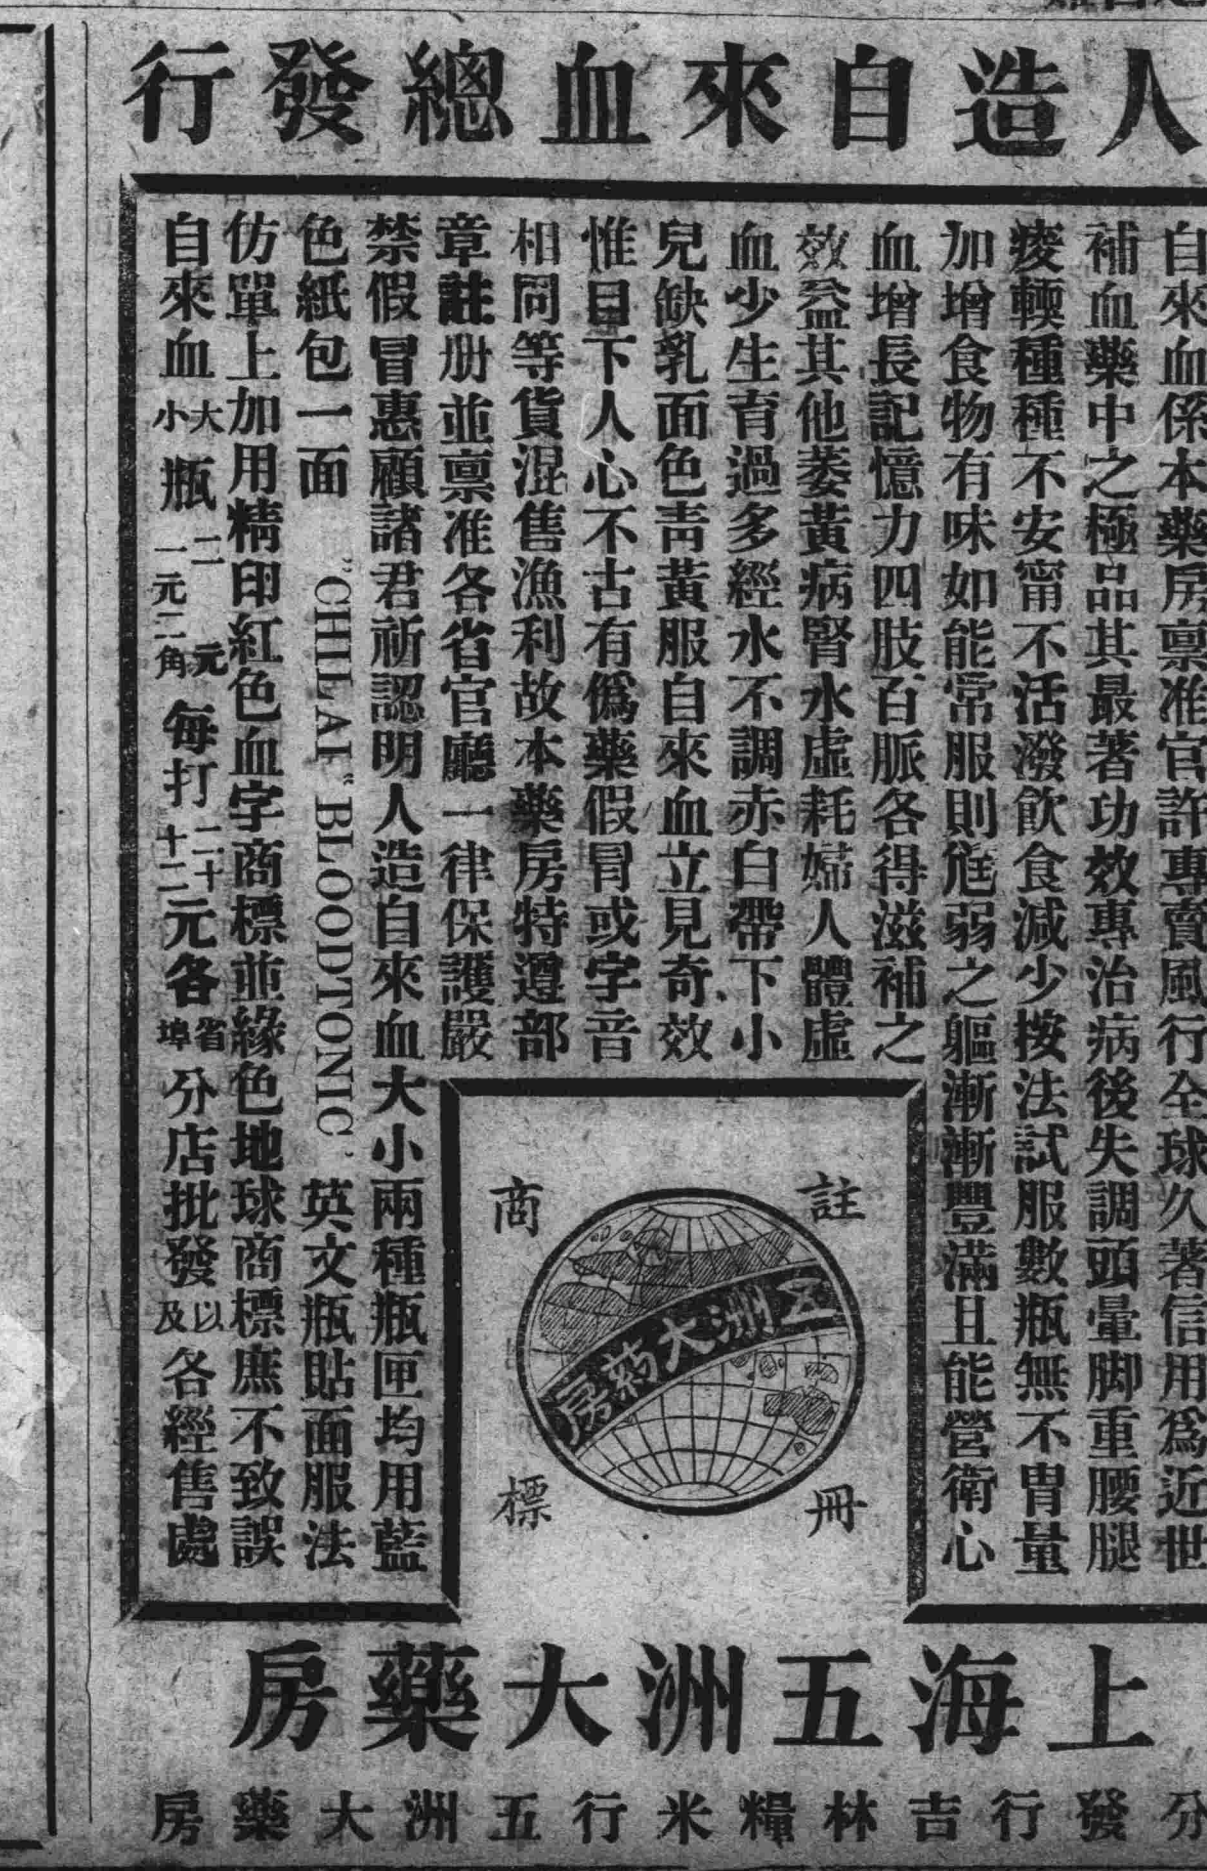 人造自來血總發行
自來血係本藥房禀准官許專賣風行全球久著信用爲近世
補血藥中之極品其最著功效專治病後失調頭暈脚重腰腿
痠輭種種不安甯不活潑飲食減少按法試服數瓶無不胃量
加增食物有味如能常服則尫弱之軀漸漸豐滿且能營衛心
血增長記憶力四肢百脈各得滋補之
效益其他萎黃病腎水虛耗婦人體虛
血少生育過多經水不調赤白帶下小
兒缺乳面色靑黃服自來血立見奇效
惟日下人心不古有僞藥假冒或字音
相同等貨混售漁利故本藥房特遵部
章註册並禀准各省官廳一律保護嚴
禁假冒惠顧諸君祈認明人造自來血大小兩種瓶匣均用藍
色紙包一面 "CHILAI" BLOODTONIC 英文瓶貼面服法
仿單上加用精印紅色血字商標並綠色地球商標庶不致誤
自來血大小瓶二元一元二角每打二十十二元各省埠分店批發以及各經售處
註冊商標
五洲大药房
上海五洲大藥房
分發行吉林糧米行五洲大藥房